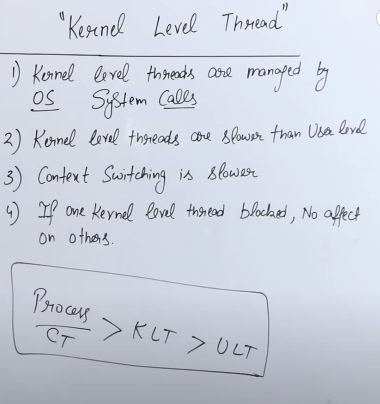 "Kernel Level Thread"
1) Kernel level threads are managed by
OS System Calls
2) Kernel level threads are slower than User level
3) Context Switching is slower
4) If one Kernel level thread blocked, No affect
on others.
Process
CT
> KLT > ULT